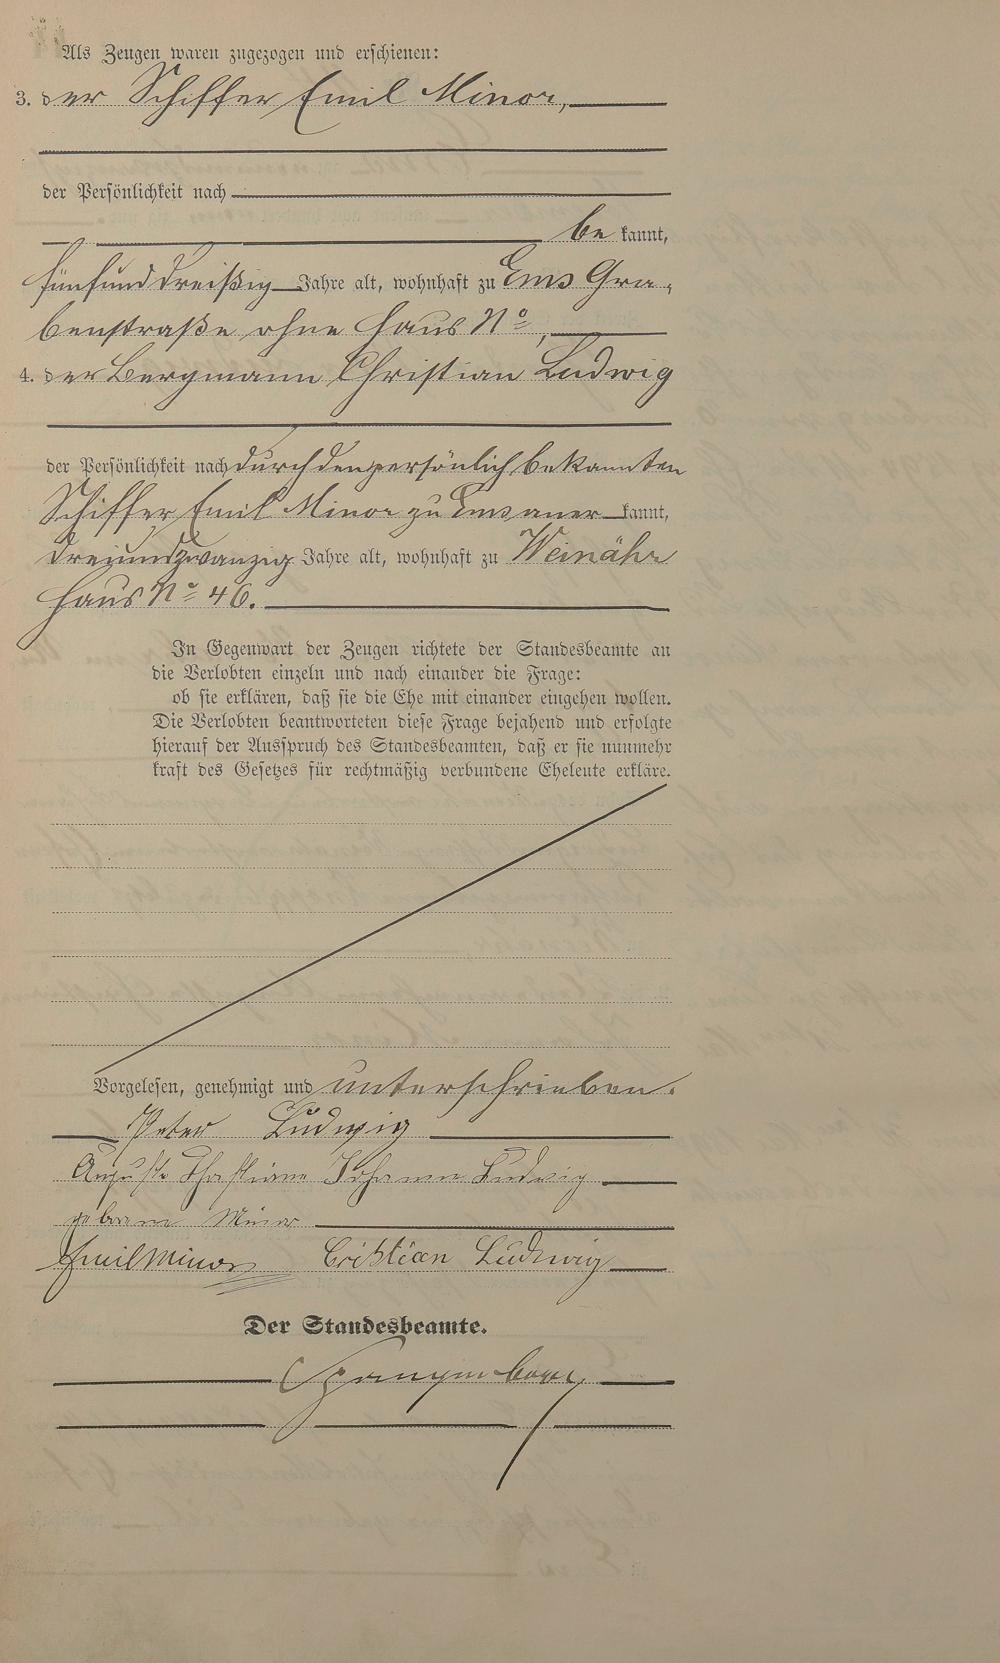 Als Zeugen waren zugezogen und erschienen:
3. der Schiffer Emil Minor,
der Persönlichkeit nach
be kannt,
fünfunddreißig Jahre alt, wohnhaft zu Ems Gra-
benstraße ohne Haus No,
4. der Bergmann Christian Ludwig
der Persönlichkeit nach durch den persönlich bekannten
Schiffer Emil Minor zu Ems aner kannt,
dreiundzwanzig Jahre alt, wohnhaft zu Weinähr
Haus No 46.
In Gegenwart der Zeugen richtete der Standesbeamte an
die Verlobten einzeln und nach einander die Frage:
ob sie erklären, daß sie die Ehe mit einander eingehen wollen.
Die Verlobten beantworteten diese Frage bejahend und erfolgte
hierauf der Ausspruch des Standesbeamten, daß er sie nunmehr
kraft des Gesetzes für rechtmäßig verbundene Eheleute erkläre.
Vorgelesen, genehmigt und unterschrieben.
Peter Ludwig
Auguste Johanna Ludwig
geborene Minor
Emil Minor Cristian Ludwig
Der Standesbeamte.